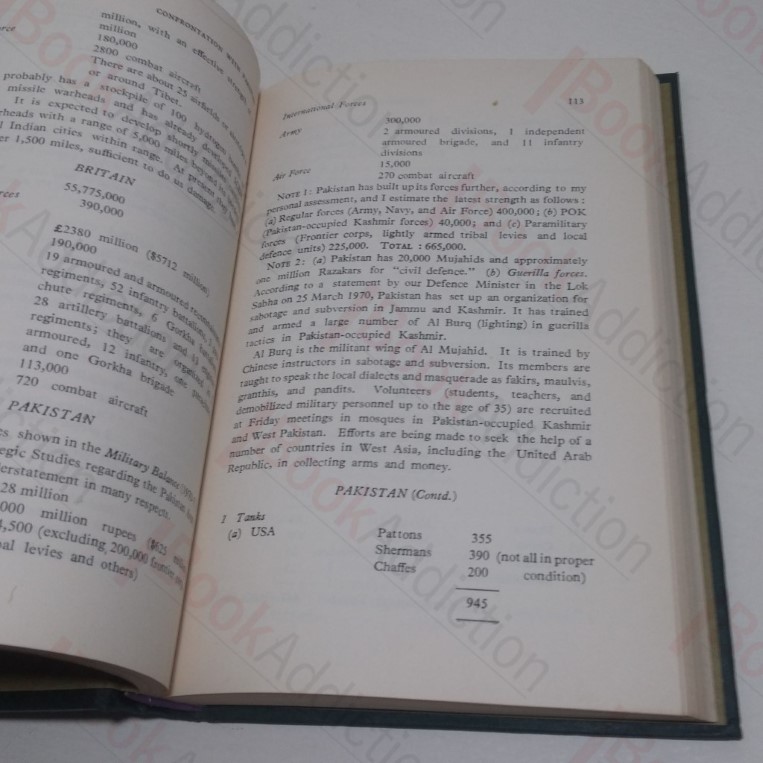 CONFRONTATION WITH
million, with an effective
million
180,000
2800 combat aircraft
There are about 25 airfields
or around Tibet.
probably has a stockpile of 100 hydrogen
missile warheads and has already deployed
It is expected to develop shortly
heads with a range of 5,000 miles
Indian cities within range. At present
1,500 miles, sufficient to do us damage.
BRITAIN
55,775,000
390,000
£2380 million ($5712 million)
190,000
19 armoured and armoured
regiments, 52 infantry battalions,
chute regiments, 6 Gorkha
28 artillery battalions and 11
regiments; they are organised
armoured, 12 infantry, one
and one Gorkha brigade
113,000
720 combat aircraft
PAKISTAN
shown in the Military Balance
Studies regarding the Pakistan
understatement in many respects.
28 million
000 million rupees ($625
,500 (excluding 200,000 frontier
levies and others)
International Forces 113
300,000
Army 2 armoured divisions, 1 independent
armoured brigade, and 11 infantry
divisions
15,000
Air Force 270 combat aircraft
NOTE 1: Pakistan has built up its forces further, according to my
personal assessment, and I estimate the latest strength as follows:
(a) Regular forces (Army, Navy, and Air Force) 400,000; (b) POK
(Pakistan-occupied Kashmir forces) 40,000; and (c) Paramilitary
forces (Frontier corps, lightly armed tribal levies and local
defence units) 225,000. TOTAL: 665,000.
NOTE 2: (a) Pakistan has 20,000 Mujahids and approximately
one million Razakars for "civil defence." (b) Guerilla forces.
According to a statement by our Defence Minister in the Lok
Sabha on 25 March 1970, Pakistan has set up an organization for
sabotage and subversion in Jammu and Kashmir. It has trained
and armed a large number of Al Burq (lighting) in guerilla
tactics in Pakistan-occupied Kashmir.
Al Burq is the militant wing of Al Mujahid. It is trained by
Chinese instructors in sabotage and subversion. Its members are
taught to speak the local dialects and masquerade as fakirs, maulvis,
granthis, and pandits. Volunteers (students, teachers, and
demobilized military personnel up to the age of 35) are recruited
at Friday meetings in mosques in Pakistan-occupied Kashmir
and West Pakistan. Efforts are being made to seek the help of a
number of countries in West Asia, including the United Arab
Republic, in collecting arms and money.
PAKISTAN (Contd.)
1 Tanks
(a) USA Pattons 355
Shermans 390 (not all in proper
Chaffes 200 condition)
945
BookAddiction